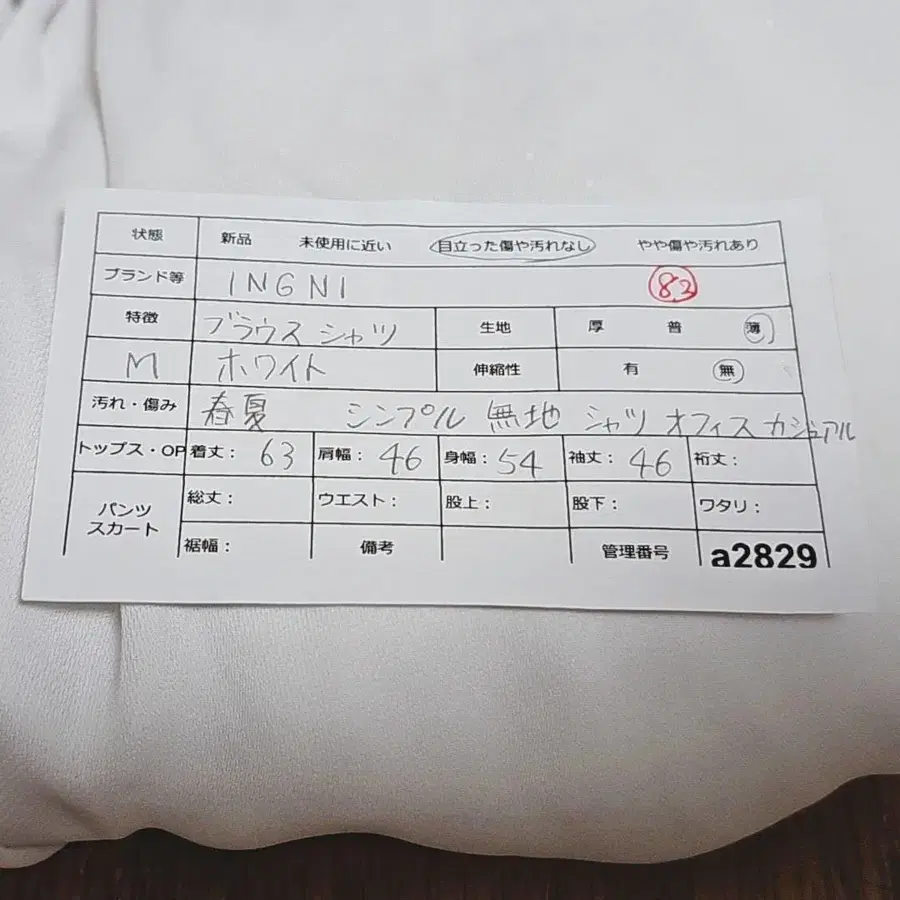 状態 新品 未使用に近い 目立った傷や汚れなし やや傷や汚れあり
ブランド等 INGNI 83
特徴 ブラウス シャツ 生地 厚 普 薄
M ホワイト 伸縮性 有 無
汚れ・傷み 春夏 シンプル 無地 シャツ オフィスカジュアル
トップス・OP 着丈: 63 肩幅: 46 身幅: 54 袖丈: 46 裄丈:
パンツ スカート 総丈: ウエスト: 股上: 股下: ワタリ:
裾幅: 備考 管理番号 a2829